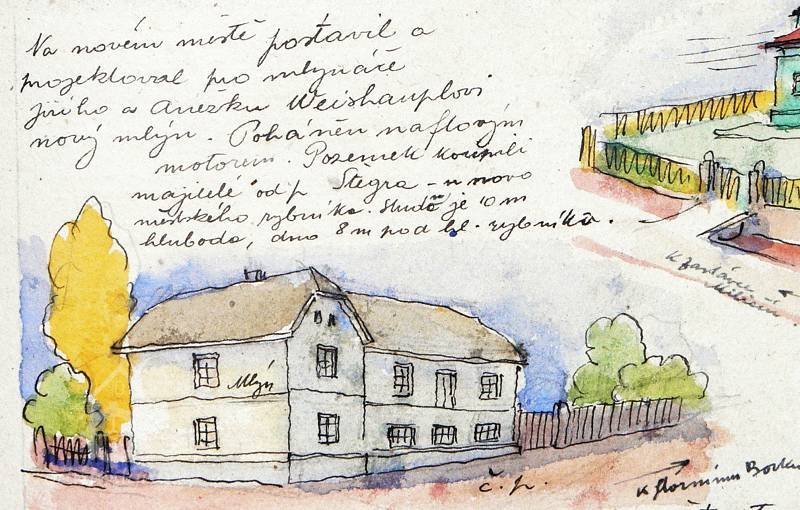 Na novém městě postavil a
projektoval pro mlynáře
Jiřího a Anežku Weishauplovi
nový mlýn. Poháněn naftovým
motorem. Pozemek koupili
majitelé od p. Štěgra - u novo
městského rybníka. Studna je 10 m
hluboda, dno 8 m pod hl. rybníka.
K zastávce
Mlýn
č. p.
K Hornímu Borku